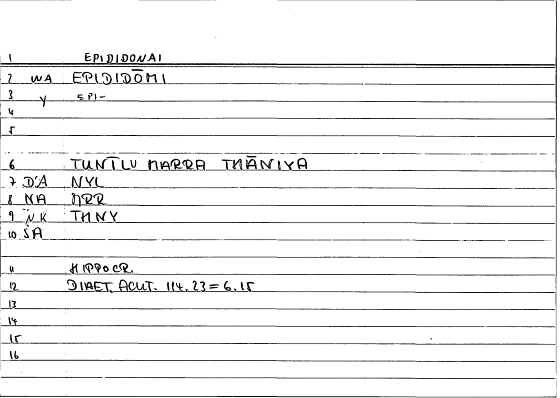 1 EPIDIDONAI
2 WA EPIDIDŌMI
3 Y EPI-
4
5
6 TUNĪLU MARRA THĀNIYA
7 DA NYL
8 NA MRR
9 NK THNY
10 SA
11 HIPPOCR.
12 DIAET. ACUT. 114.23=6.15
13
14
15
16